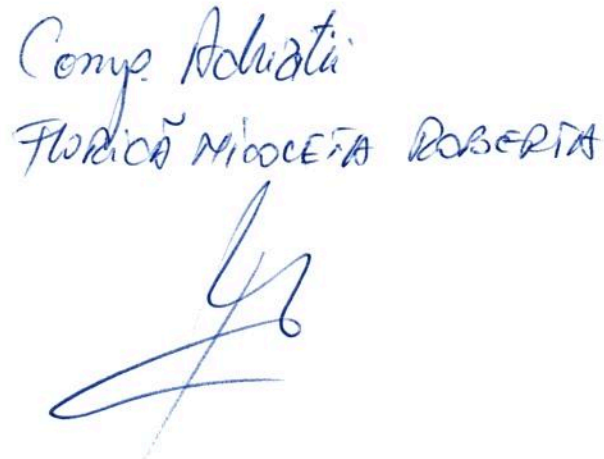 Comp. Achizitii
FLORICĂ NICOLETA ROBERTA